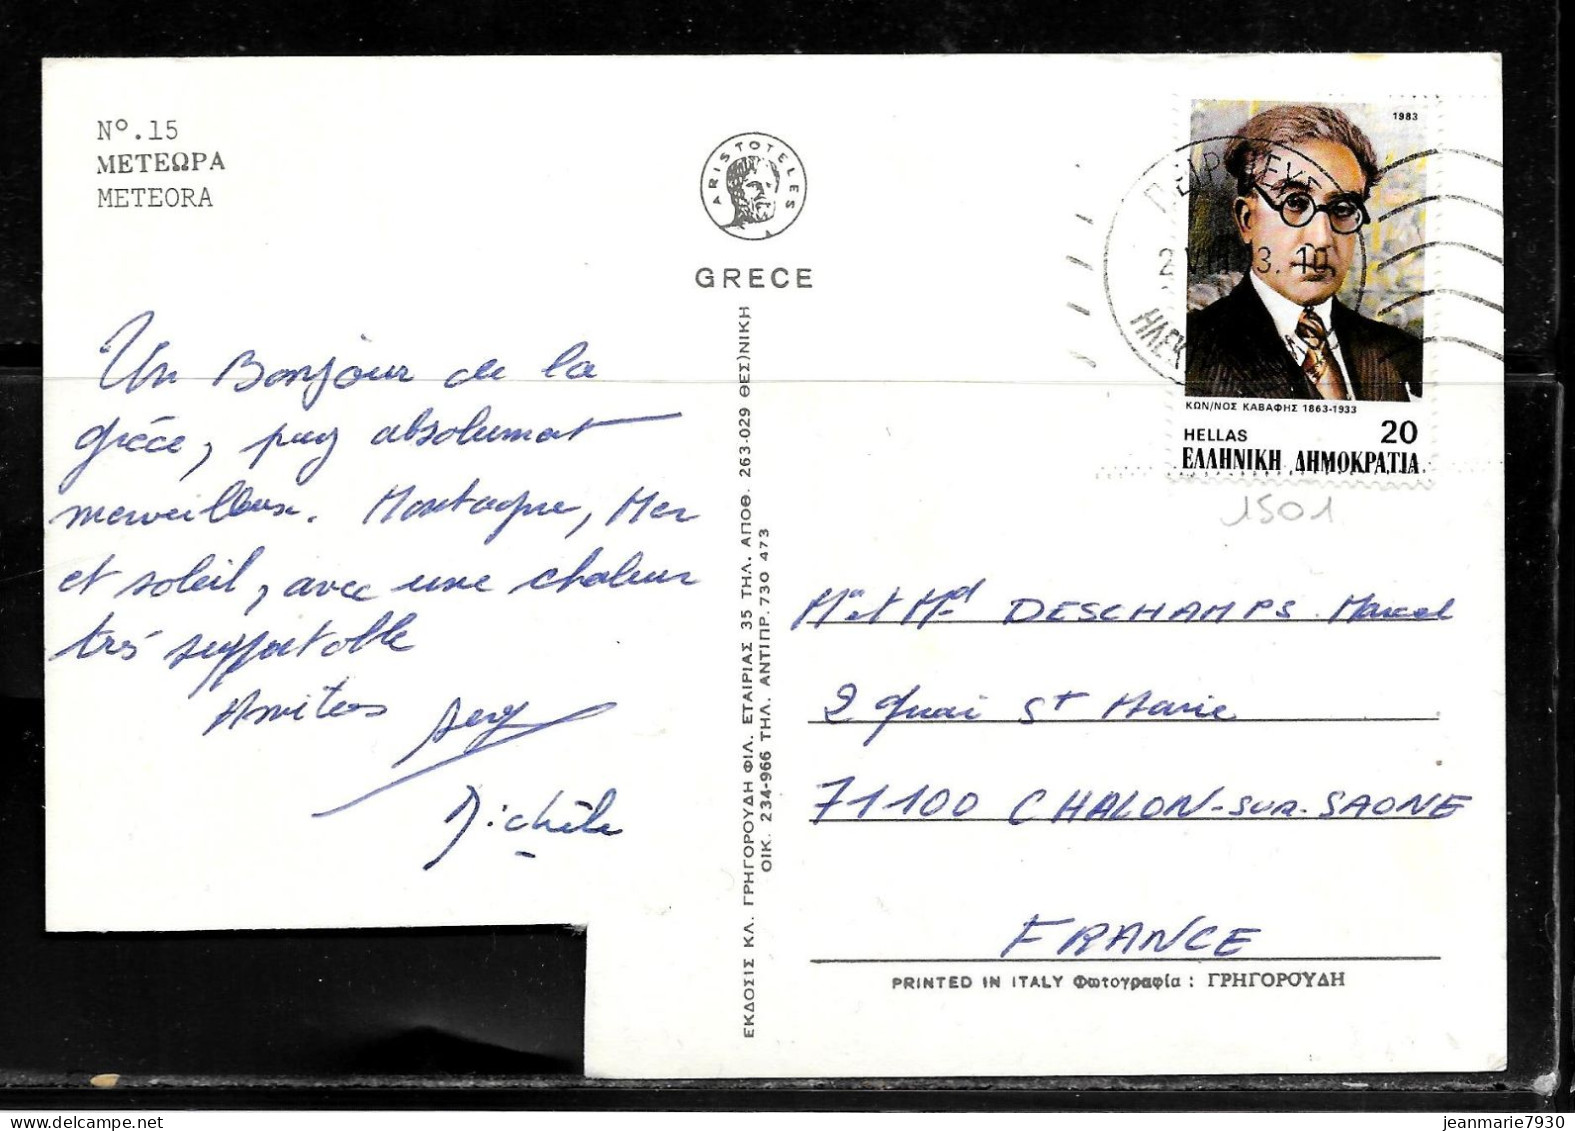 Nº.15
ΜΕΤΕΩΡΑ
METEORA
ARISTOTELES
GRECE
Un Bonjour de la
grèce, pays absolumat
merveilleux. Montagne, Mer
et soleil, avec une chaleur
très supportable
Amitiés
Michèle
ΕΚΔΟΣΙΣ ΚΛ. ΓΡΗΓΟΡΟΥΔΗ ΦΙΛ. ΕΤΑΙΡΙΑΣ 35 ΤΗΛ. ΑΠΟΘ. 263-029 ΘΕΣ)ΝΙΚΗ
ΟΙΚ. 234-966 ΤΗΛ. ΑΝΤΙΠΡ. 730 473
1983
ΚΩΝ/ΝΟΣ ΚΑΒΑΦΗΣ 1863-1933
HELLAS 20
ΕΛΛΗΝΙΚΗ ΔΗΜΟΚΡΑΤΙΑ
1501
Mr et Md DESCHAMPS Marcel
2 Quai St Marie
71100 CHALON-sur-SAONE
FRANCE
PRINTED IN ITALY Φωτογραφία : ΓΡΗΓΟΡΟΎΔΗ
jeanmarie7930